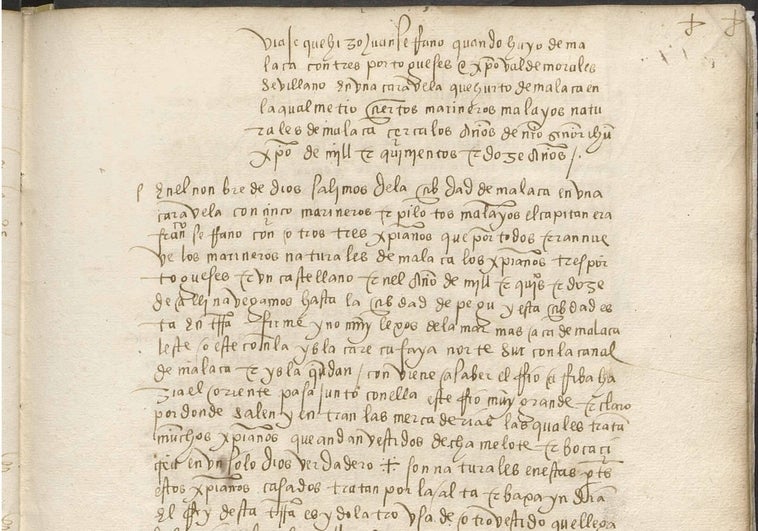 viaje que hizo Juan serrano quando huyo de ma
laca con tres portogueses & xpoval de morales
sevillano en una caravela que hurto de malaca en
la qual metio çiertos marineros malayos natu
rales de malaca çerca los Años de nro señor ihu
xpo de mill & quinientos & doze Años /.
En el nonbre de dios salimos de la çibdad de malaca en una
caravela con çinco marineros & pilotos malayos el capitan era
franco serrano con otros tres xpianos que por todos eran nue
ve los marineros naturales de malaca los xpianos tres por
togueses & un castellano & en el Año de mill & quios & doze
de Alli navegamos hasta la çibdad de pegu y esta çibdad es
ta En trra firme y no muy lexos de la mar mas aca de malaca
leste oeste con la ysla norte sur con la canal
de malaca & ysla conviene a saber el Rio aRiba ha
zia el oriente pasa junto con ella este Rio muy grande & claro
por donde salen y entran las mercaderias las quales tratan
muchos xpianos que andan vestidos de chamelote & bocaçi
en un solo dios verdadero son naturales en estas ptes
estos xpianos casados tratan por la alta & baxa yndia
El Rey desta trra es ydolatro usa de otro vestido que llega